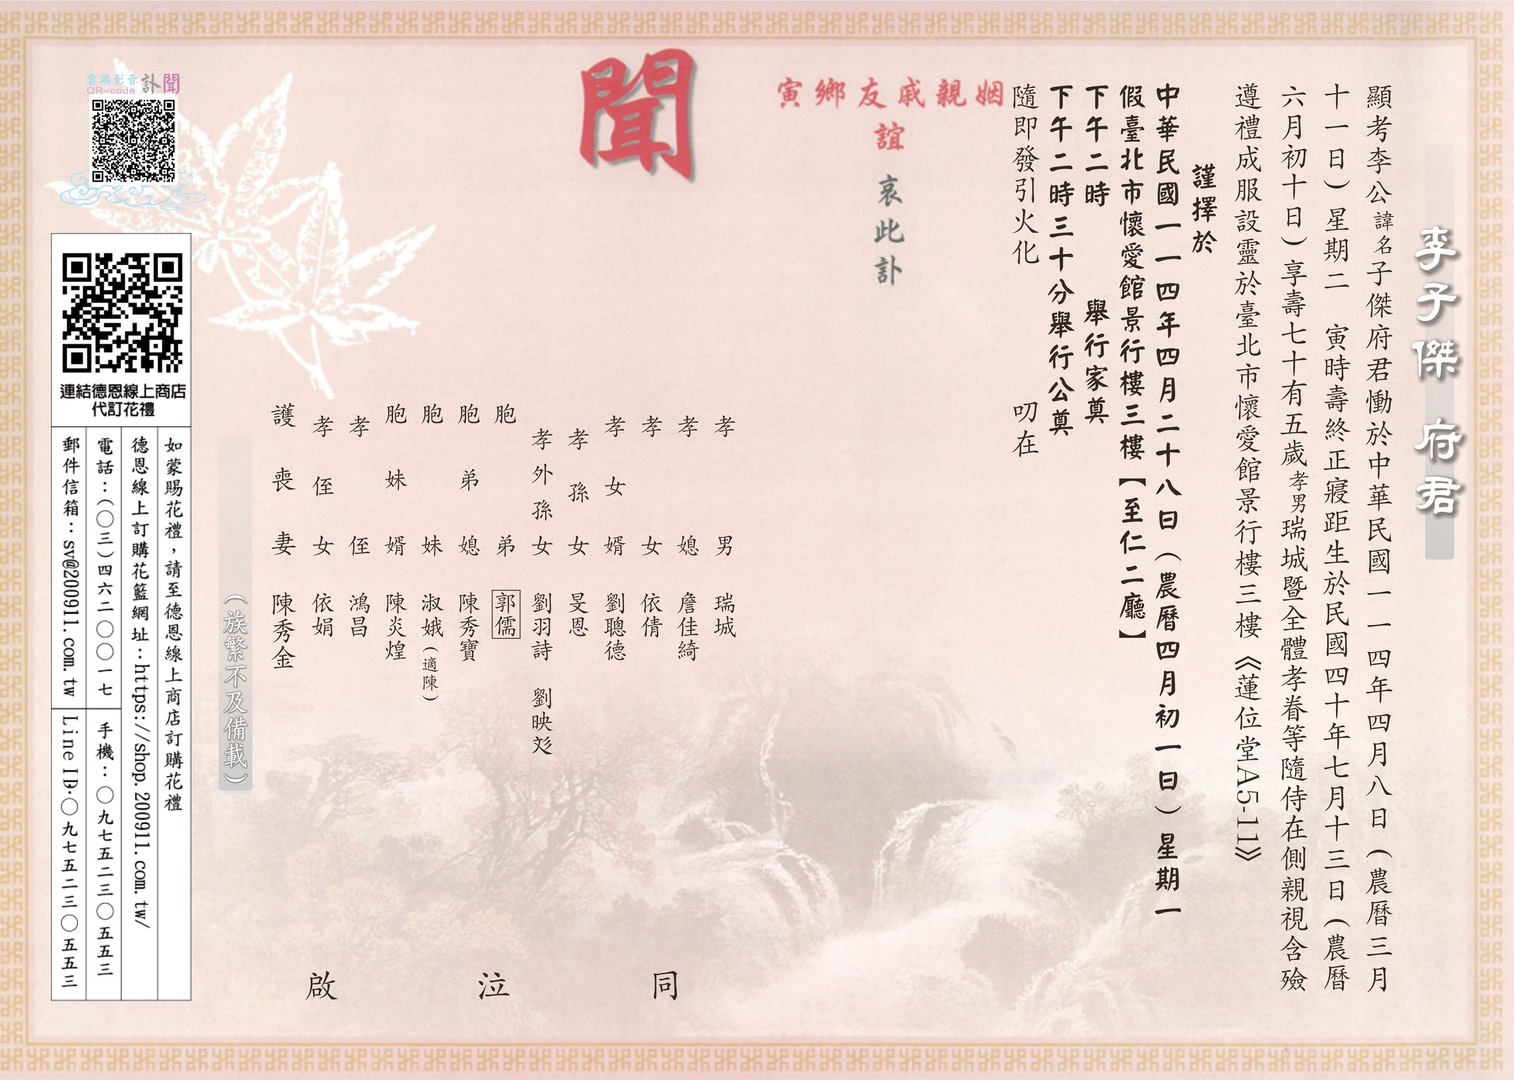 李子傑 府君
顯考李公諱名子傑府君慟於中華民國一一四年四月八日(農曆三月
十一日)星期二 寅時壽終正寢距生於民國四十年七月十三日(農曆
六月初十日)享壽七十有五歲孝男瑞城暨全體孝眷等隨侍在側親視含殮
遵禮成服設靈於臺北市懷愛館景行樓三樓《蓮位堂A5-11》
謹擇於
中華民國一一四年四月二十八日(農曆四月初一日)星期一
假臺北市懷愛館景行樓三樓【至仁二廳】
下午二時 舉行家奠
下午二時三十分舉行公奠
隨即發引火化 叨在
姻親戚友鄉寅
誼
哀此訃
聞
孝男 瑞城
孝媳 詹佳綺
孝女 依倩
孝女婿 劉聰德
孝孫女 旻恩
孝外孫女 劉羽詩 劉映彣
胞弟 郭儒
胞弟媳 陳秀寶
胞妹 淑娥(適陳)
胞妹婿 陳炎煌
孝侄 鴻昌
孝侄女 依娟
護喪妻 陳秀金
同泣啟
(族繁不及備載)
雲端影音
QR-code
訃聞
連結德恩線上商店
代訂花禮
如蒙賜花禮,請至德恩線上商店訂購花禮
德恩線上訂購花籃網址:https://shop.200911.com.tw/
電話:(〇三)四六二〇〇一七
手機:〇九七五二三〇五五三
郵件信箱:sv@200911.com.tw
Line ID:〇九七五二三〇五五三